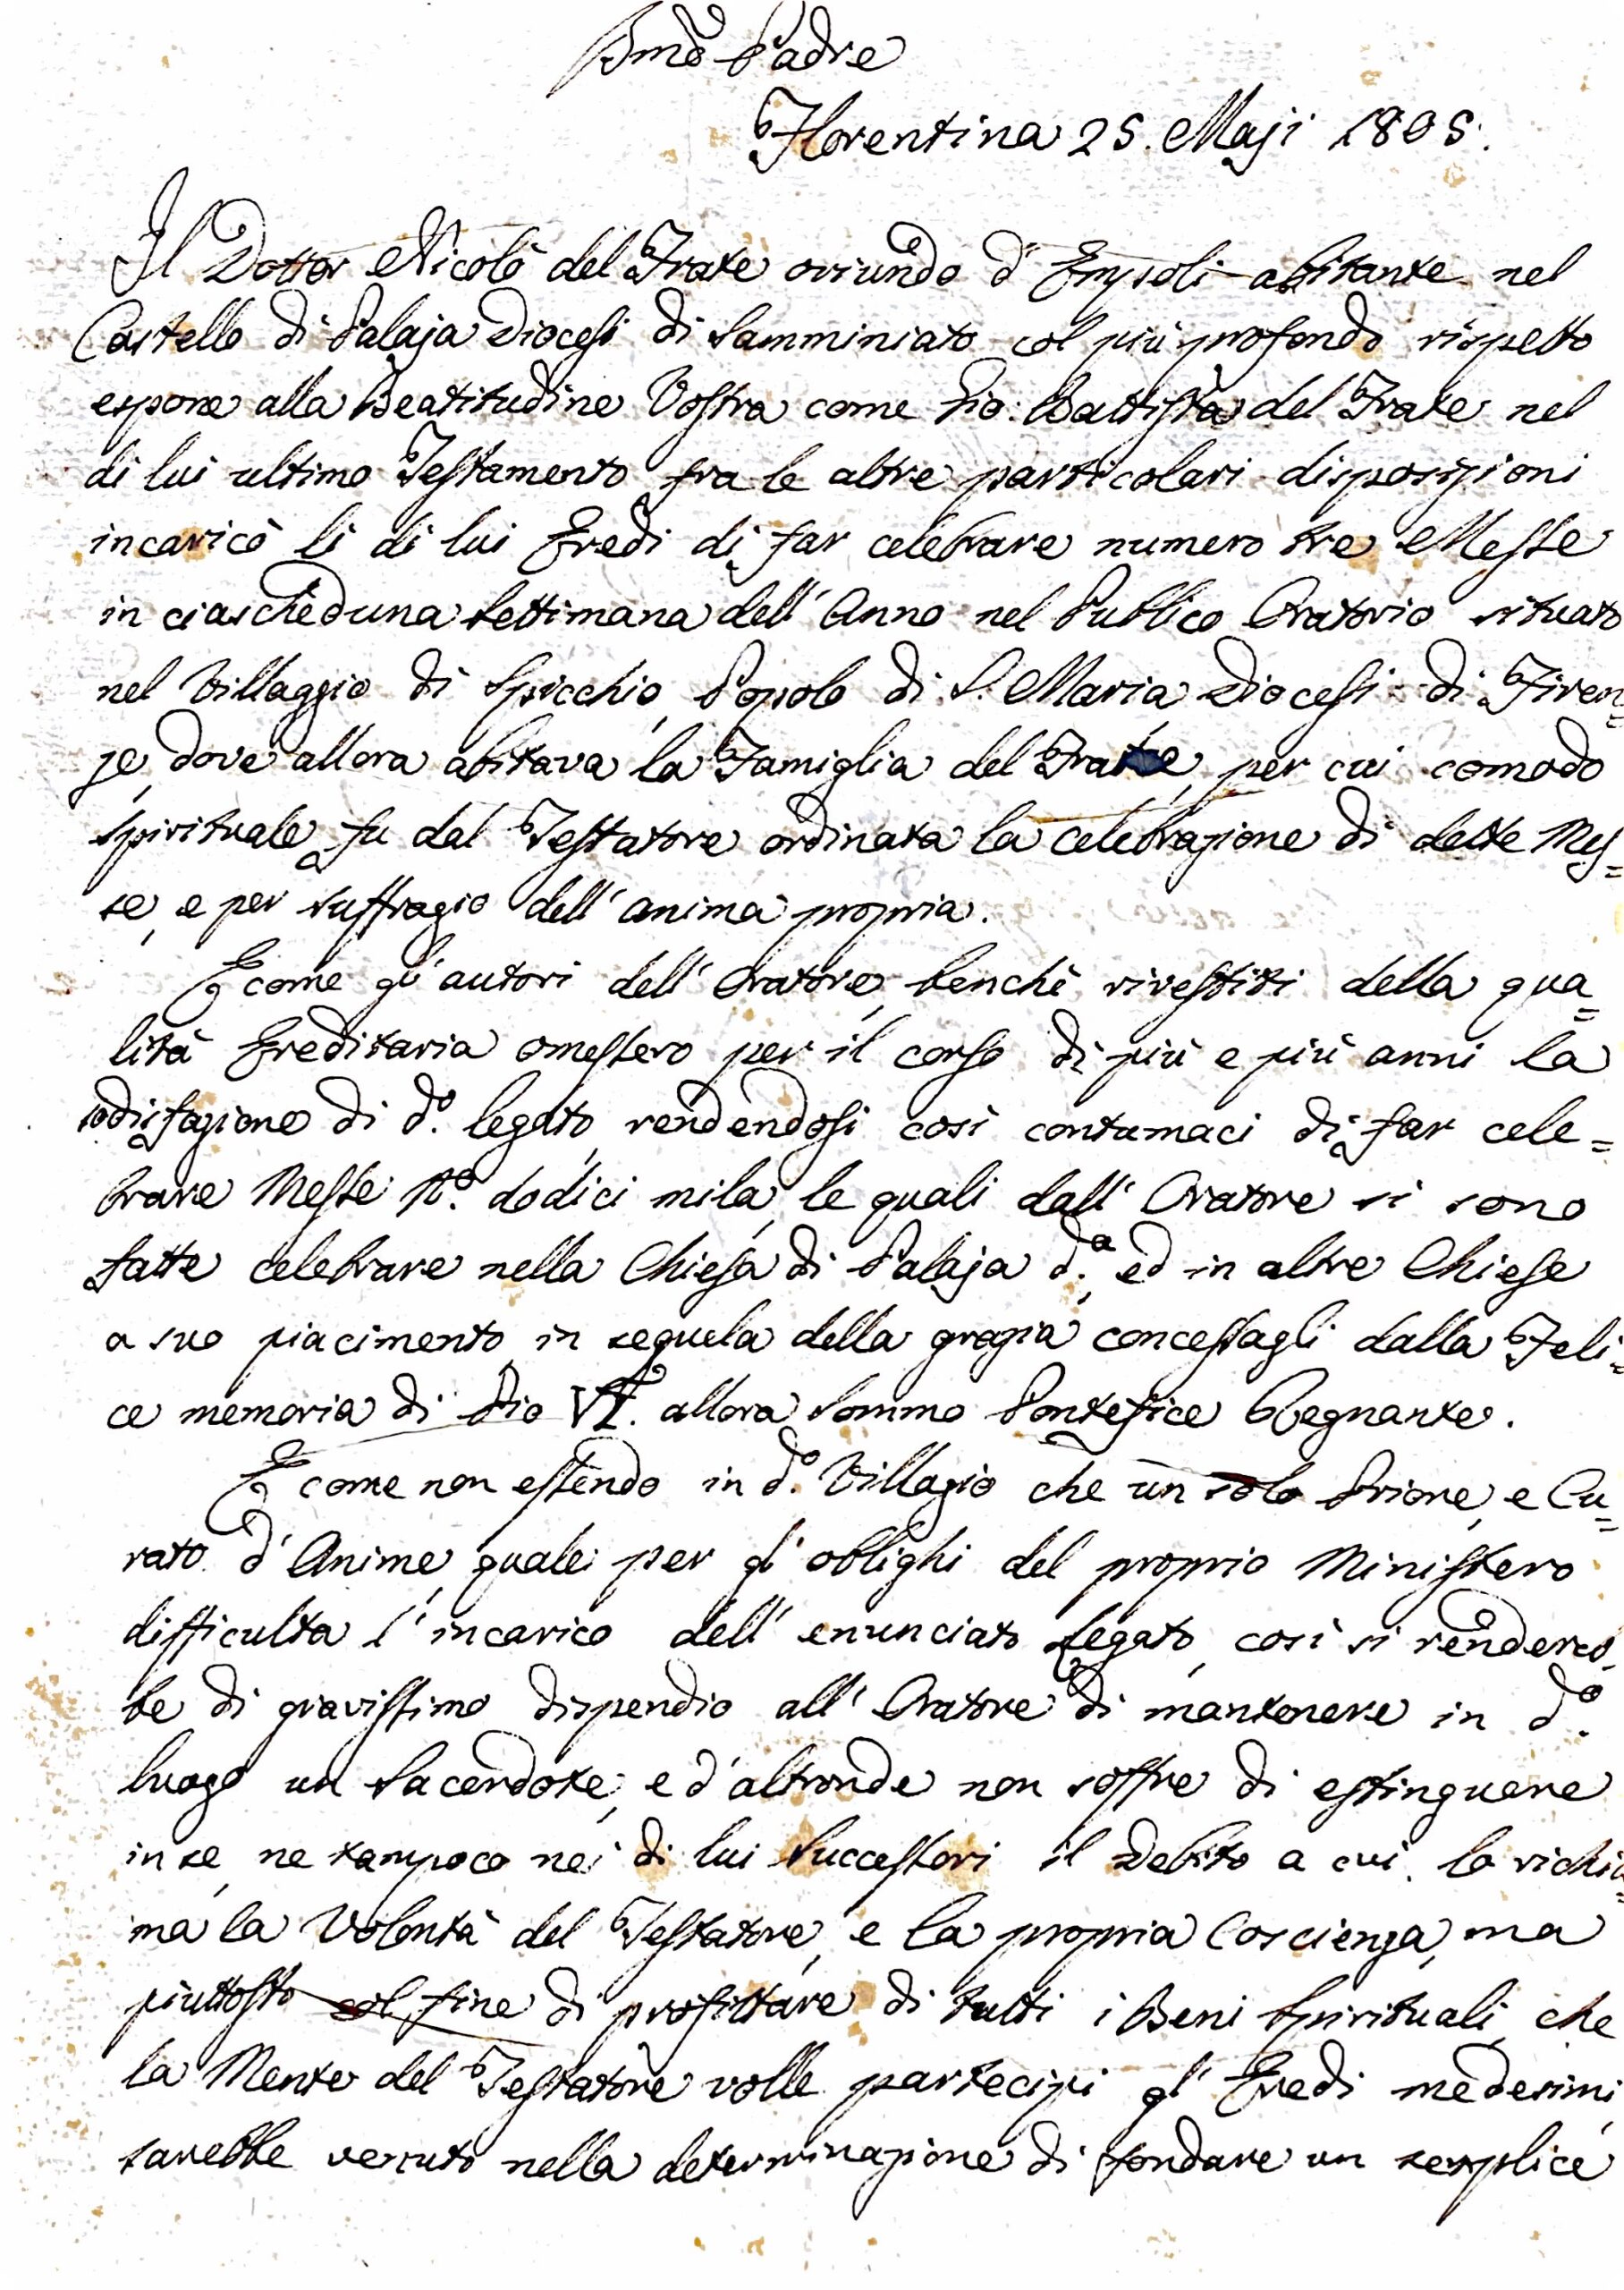 Bmo Padre
Florentina 25. Maji 1805.
Il Dottor Nicolò del Frate oriundo d'Empoli abitante nel
Castello di Palaja Diocesi di Samminiato col più profondo rispetto
espone alla Beatitudine Vostra come Gio: Battista del Frate nel
di lui ultimo Testamento fra le altre particolari disposizioni
incaricò li di lui Eredi di far celebrare numero tre Messe
in ciascheduna Settimana dell'Anno nel Pubblico Oratorio situato
nel Villaggio di Spicchio, Popolo di S. Maria Diocesi di Firen=
ze, dove allora abitava la Famiglia del Frate, per cui comodo
Spirituale fu dal Testatore ordinata la celebrazione di dette Mes=
se, e per suffragio dell'anima propria.
E come gl'autori dell'Oratore, benchè rivestiti della qua=
lità Ereditaria omessero per il corso di più e più anni la
sodisfazione di do. legato, rendendosi così contumaci di far cele=
brare Messe No. dodici mila, le quali dall'Oratore si sono
fatte celebrare nella Chiesa di Palaja da., ed in altre Chiese
a suo piacimento in sequela della grazia concessagli dalla Feli=
ce memoria di Pio VI. allora Sommo Pontefice Regnante.
E come non essendo in do. Villagio che un solo Priore, e Cu=
rato d'Anime, quale per gl'oblighi del proprio Ministero
difficulta l'incarico dell'enunciato Legato, così si rendereb=
be di gravissimo dispendio all'Oratore di mantenere in do.
luogo un Sacerdote, e d'altronde non soffre di estinguere
in se, ne tampoco nei di lui Successori il Debito a cui lo richia=
ma la Volontà del Testatore, e la propria Coscienza, ma
piuttosto col fine di profittare di tutti i Beni Spirituali, che
la Mente del Testatore volle partecipi gl'Eredi medesimi,
sarebbe venuto nella determinazione di fondare un semplice